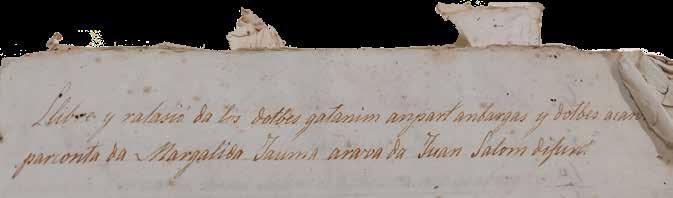 Llibre y ralasió da los dotbes gatanim anpart andargas y dotbes acan
parconta da Margalida Jauma arava da Juan Salom difunt